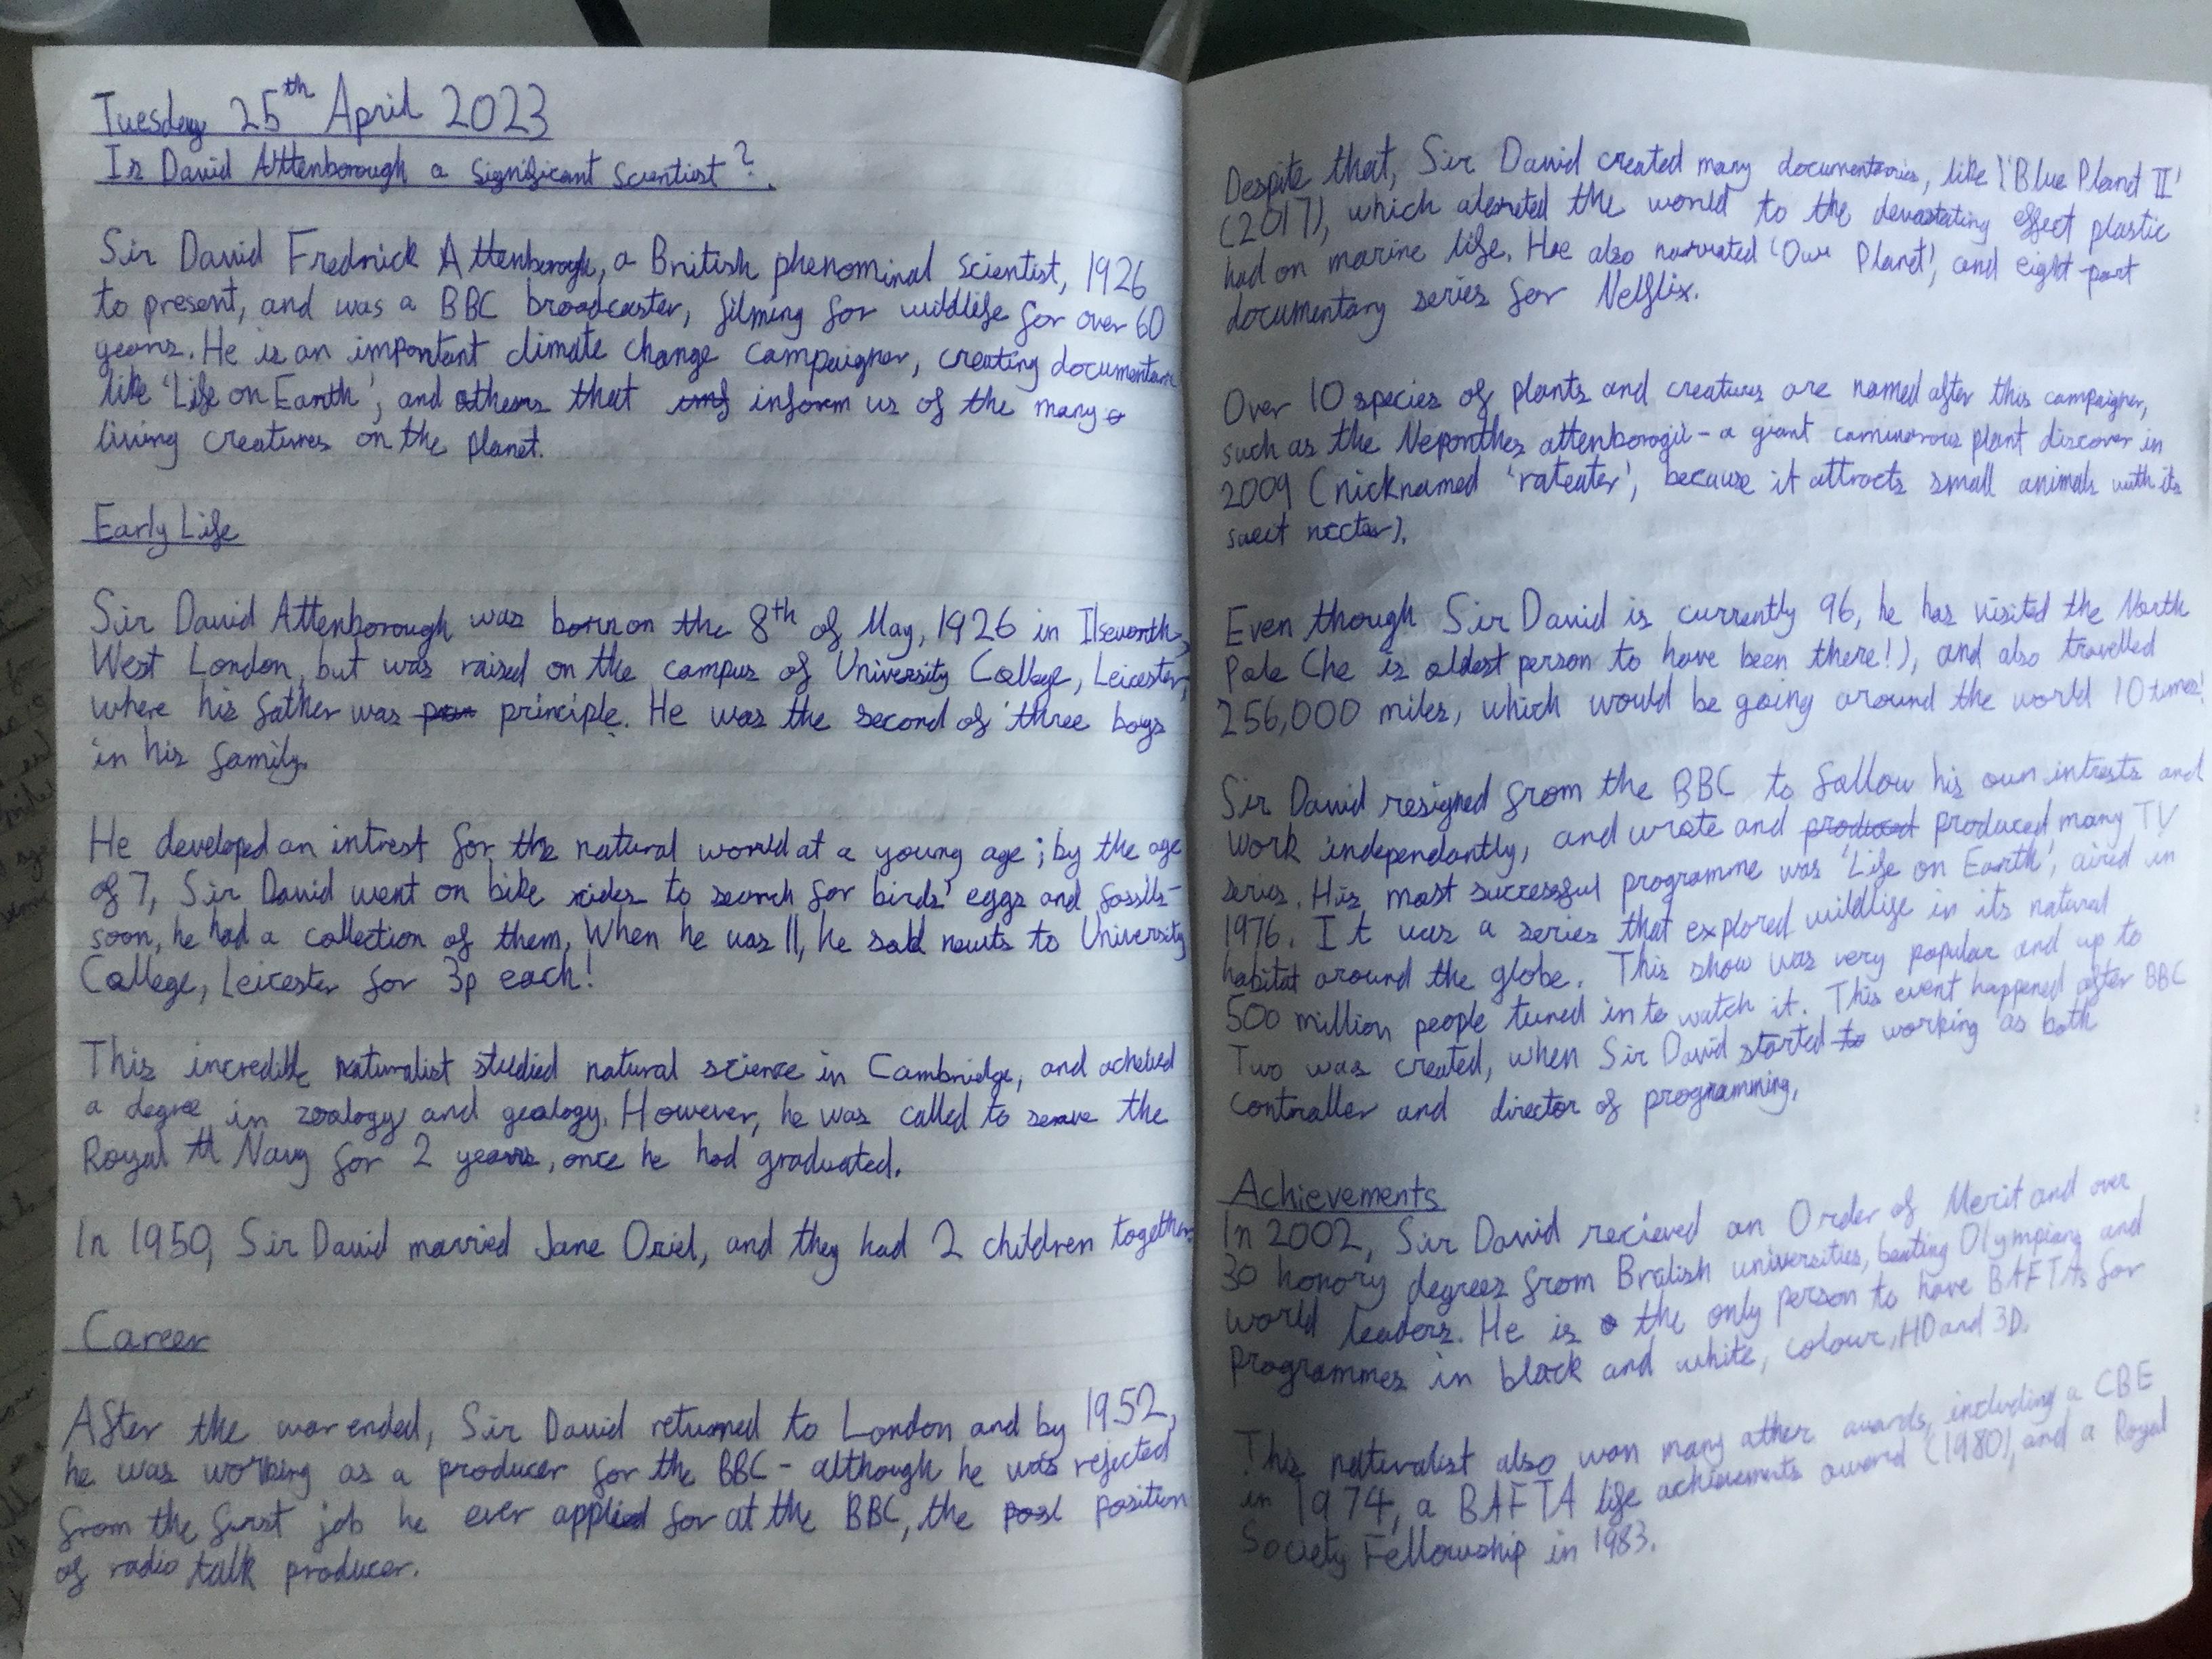 Tuesday 25th April 2023
Is David Attenborough a significant scientist?
Sir David Fredrick Attenborough, a British phenominal scientist, 1926
to present, and was a BBC broadcaster, filming for wildlife for over 60
years. He is an important climate change campaigner, creating documentaries
like 'Life on Earth', and others that inform us of the many
living creatures on the planet.
Early Life
Sir David Attenborough was born on the 8th of May, 1926 in Ilseworth,
West London, but was raised on the campus of University College, Leicester,
where his father was principle. He was the second of three boys
in his family.
He developed an intrest for the natural world at a young age; by the age
of 7, Sir David went on bike rides to search for birds' eggs and fossils-
soon, he had a collection of them. When he was 11, he sold newts to University
College, Leicester for 3p each!
This incredible naturalist studied natural science in Cambridge, and acheived
a degree in zoology and geology. However, he was called to serve the
Royal Navy for 2 years, once he had graduated.
In 1950, Sir David married Jane Oriel, and they had 2 children together.
Career
After the war ended, Sir David returned to London and by 1952,
he was working as a producer for the BBC - although he was rejected
from the first job he ever applied for at the BBC, the position
of radio talk producer.
Despite that, Sir David created many documentaries, like 'Blue Planet II'
(2017), which alerted the world to the devastating effect plastic
had on marine life. He also narrated 'Our Planet', and eight-part
documentary series for Netflix.
Over 10 species of plants and creatures are named after this campaigner,
such as the Neponthes attenborogii - a giant carnivorous plant discover in
2009 (nicknamed 'rateater', because it attracts small animals with its
sweet nectar).
Even though Sir David is currently 96, he has visited the North
Pole (he is oldest person to have been there!), and also travelled
256,000 miles, which would be going around the world 10 times!
Sir David resigned from the BBC to follow his own intrests and
work independantly, and wrote and produced many TV
series. His most successful programme was 'Life on Earth', aired in
1976. It was a series that explored wildlife in its natural
habitat around the globe. This show was very popular and up to
500 million people tuned in to watch it. This event happened after BBC
Two was created, when Sir David started working as both
controller and director of programming.
Achievements
In 2002, Sir David recieved an Order of Merit and over
30 honory degrees from British universities, beating Olympians and
world leaders. He is the only person to have BAFTAs for
programmes in black and white, colour, HD and 3D.
This naturalist also won many other awards, including a CBE
in 1974, a BAFTA life achievements award (1980), and a Royal
Society Fellowship in 1983.